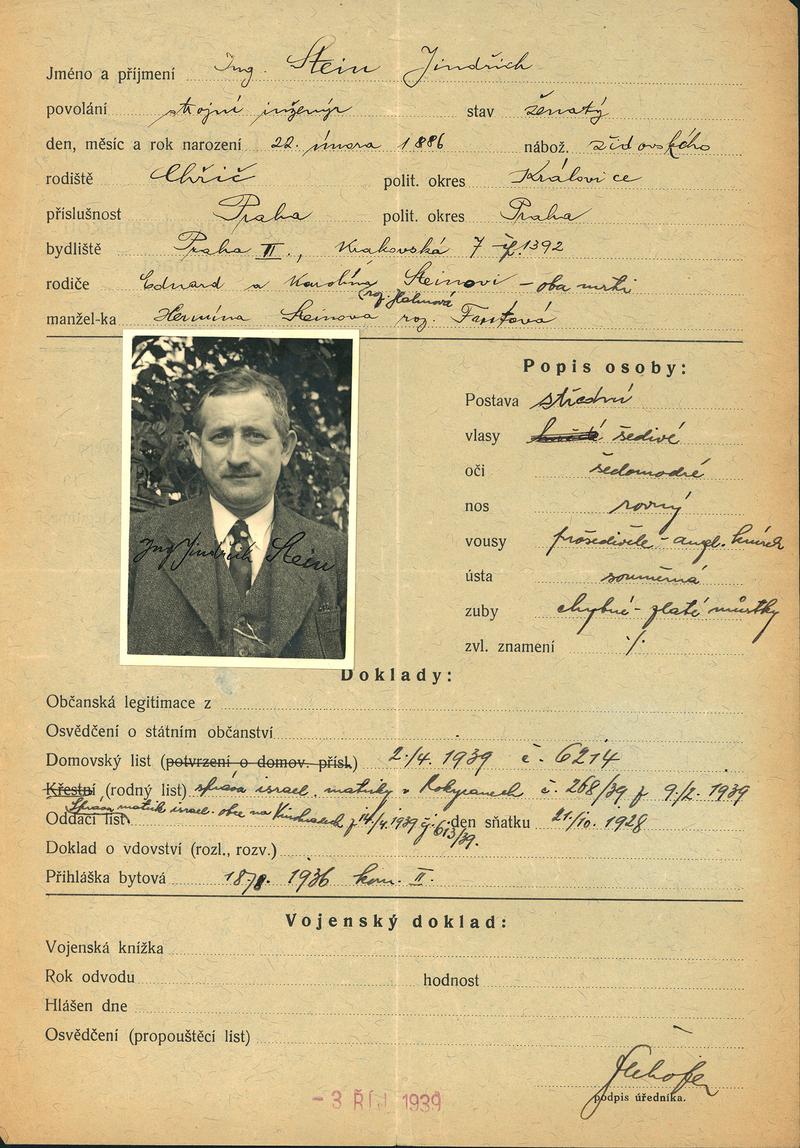 Jméno a příjmení Ing. Stein Jindřich
povolání strojní inženýr stav ženatý
den, měsíc a rok narození 22. února 1886 nábož. židovského
rodiště Chříč polit. okres Královice
příslušnost Praha polit. okres Praha
bydliště Praha II., Krakovská 7 čp. 1392
rodiče Eduard a Karolina Steinovi – oba mrtvi
roz.
manžel-ka Hermína Steinová roz.
Popis osoby:
Postava střední
vlasy šedivé
oči šedomodré
nos rovný
vousy prošedivělé - angl. knírek
ústa souměrná
zuby chybné - zlaté můstky
zvl. znamení ./.
Ing Jindřich Stein
Doklady:
Občanská legitimace z
Osvědčení o státním občanství
Domovský list (potvrzení o domov. přísl.) 2./4. 1939 č. 6214
Křestní (rodný list) správa israel. matriky v Rokycanech č. 268/39 z 9./2. 1939
Správa matrik israel. obce na Vinohradech z 14./4. 1939 č. 613/39.
Oddací list den sňatku 21./10. 1928
Doklad o vdovství (rozl., rozv.)
Přihláška bytová 1936 kom. II.
Vojenský doklad:
Vojenská knížka
Rok odvodu hodnost
Hlášen dne
Osvědčení (propouštěcí list)
podpis úředníka.
-3 ŘÍJ 1939